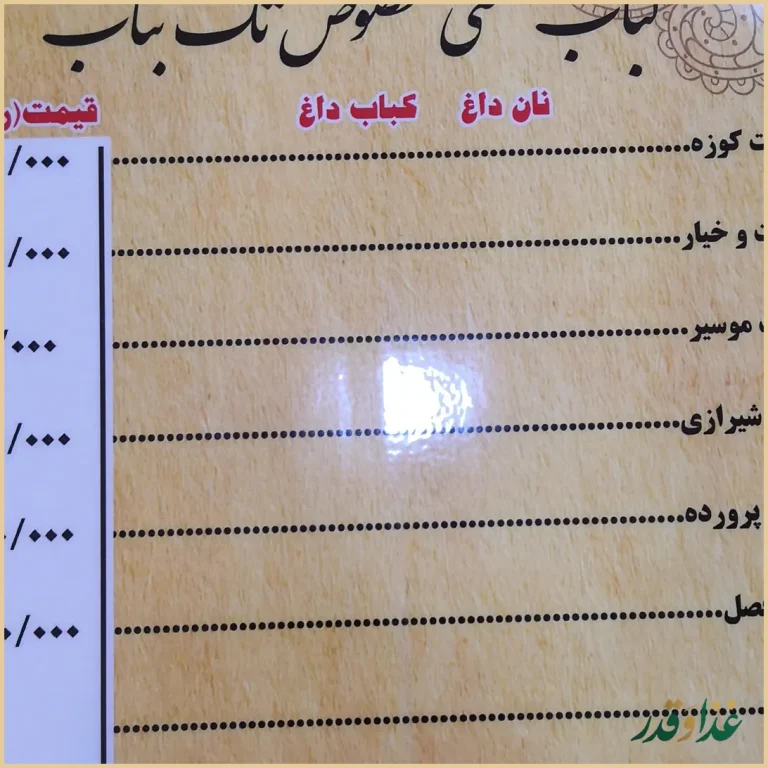 کباب مخصوص تک بناب
نان داغ کباب داغ قیمت(ر
ت کوزه /۰۰۰
ت و خیار /۰۰۰
موسیر /۰۰۰
شیرازی /۰۰۰
پرورده ۰/۰۰۰
صل ۰/۰۰۰
غذا و قدر